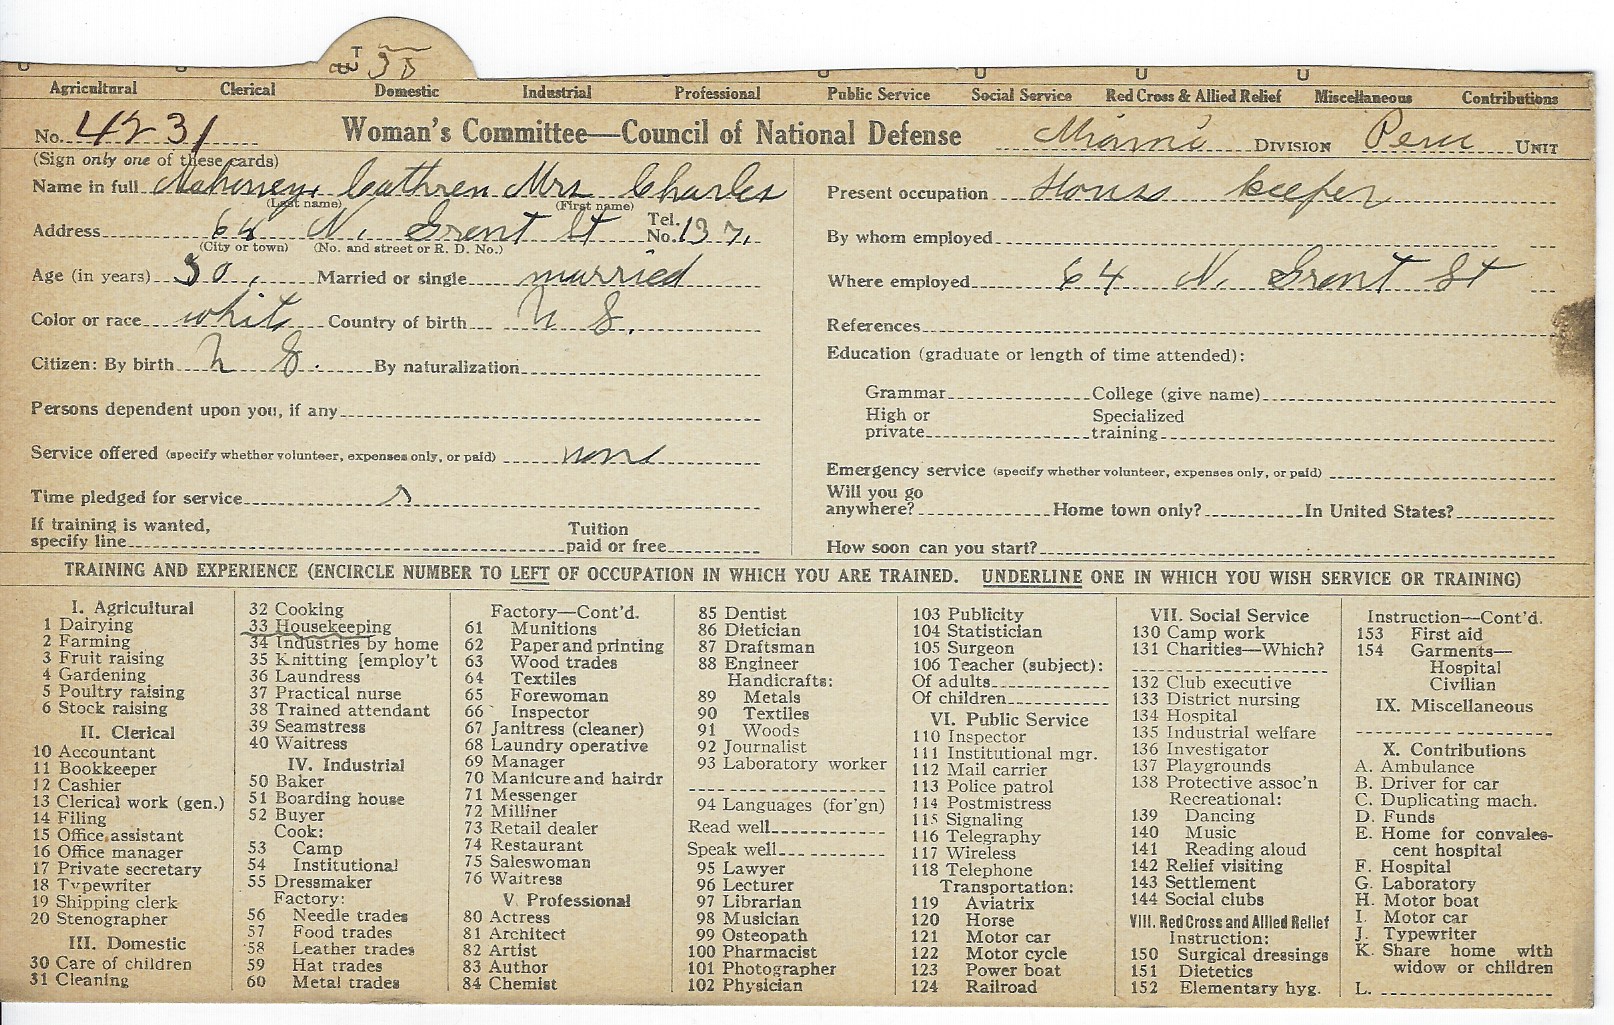 Agricultural Clerical Domestic Industrial Professional Public Service Social Service Red Cross & Allied Relief Miscellaneous Contributions
No. 4231 Woman's Committee—Council of National Defense Miami DIVISION Peru UNIT
(Sign only one of these cards)
Name in full Mahoney, Cathren Mrs Charles
(Last name) (First name)
Address 64 N. Grant St Tel. No. 137.
(City or town) (No. and street or R. D. No.)
Age (in years) 30. Married or single married
Color or race white Country of birth U S.
Citizen: By birth U S. By naturalization
Persons dependent upon you, if any
Service offered (specify whether volunteer, expenses only, or paid) none
Time pledged for service
If training is wanted,
specify line Tuition paid or free
Present occupation House keeper
By whom employed
Where employed 64 N. Grant St
References
Education (graduate or length of time attended):
Grammar College (give name)
High or private Specialized training
Emergency service (specify whether volunteer, expenses only, or paid)
Will you go anywhere? Home town only? In United States?
How soon can you start?
TRAINING AND EXPERIENCE (ENCIRCLE NUMBER TO LEFT OF OCCUPATION IN WHICH YOU ARE TRAINED. UNDERLINE ONE IN WHICH YOU WISH SERVICE OR TRAINING)
I. Agricultural
1 Dairying
2 Farming
3 Fruit raising
4 Gardening
5 Poultry raising
6 Stock raising
II. Clerical
10 Accountant
11 Bookkeeper
12 Cashier
13 Clerical work (gen.)
14 Filing
15 Office assistant
16 Office manager
17 Private secretary
18 Typewriter
19 Shipping clerk
20 Stenographer
III. Domestic
30 Care of children
31 Cleaning
32 Cooking
33 Housekeeping
34 Industries by home
35 Knitting [employ't
36 Laundress
37 Practical nurse
38 Trained attendant
39 Seamstress
40 Waitress
IV. Industrial
50 Baker
51 Boarding house
52 Buyer
Cook:
53 Camp
54 Institutional
55 Dressmaker
Factory:
56 Needle trades
57 Food trades
58 Leather trades
59 Hat trades
60 Metal trades
Factory—Cont'd.
61 Munitions
62 Paper and printing
63 Wood trades
64 Textiles
65 Forewoman
66 Inspector
67 Janitress (cleaner)
68 Laundry operative
69 Manager
70 Manicure and hairdr
71 Messenger
72 Milliner
73 Retail dealer
74 Restaurant
75 Saleswoman
76 Waitress
V. Professional
80 Actress
81 Architect
82 Artist
83 Author
84 Chemist
85 Dentist
86 Dietician
87 Draftsman
88 Engineer
Handicrafts:
89 Metals
90 Textiles
91 Woods
92 Journalist
93 Laboratory worker
94 Languages (for'gn)
Read well
Speak well
95 Lawyer
96 Lecturer
97 Librarian
98 Musician
99 Osteopath
100 Pharmacist
101 Photographer
102 Physician
103 Publicity
104 Statistician
105 Surgeon
106 Teacher (subject):
Of adults
Of children
VI. Public Service
110 Inspector
111 Institutional mgr.
112 Mail carrier
113 Police patrol
114 Postmistress
115 Signaling
116 Telegraphy
117 Wireless
118 Telephone
Transportation:
119 Aviatrix
120 Horse
121 Motor car
122 Motor cycle
123 Power boat
124 Railroad
VII. Social Service
130 Camp work
131 Charities—Which?
132 Club executive
133 District nursing
134 Hospital
135 Industrial welfare
136 Investigator
137 Playgrounds
138 Protective assoc'n
Recreational:
139 Dancing
140 Music
141 Reading aloud
142 Relief visiting
143 Settlement
144 Social clubs
VIII. Red Cross and Allied Relief
Instruction:
150 Surgical dressings
151 Dietetics
152 Elementary hyg.
Instruction—Cont'd.
153 First aid
154 Garments—
Hospital
Civilian
IX. Miscellaneous
X. Contributions
A. Ambulance
B. Driver for car
C. Duplicating mach.
D. Funds
E. Home for convales-
cent hospital
F. Hospital
G. Laboratory
H. Motor boat
I. Motor car
J. Typewriter
K. Share home with
widow or children
L.